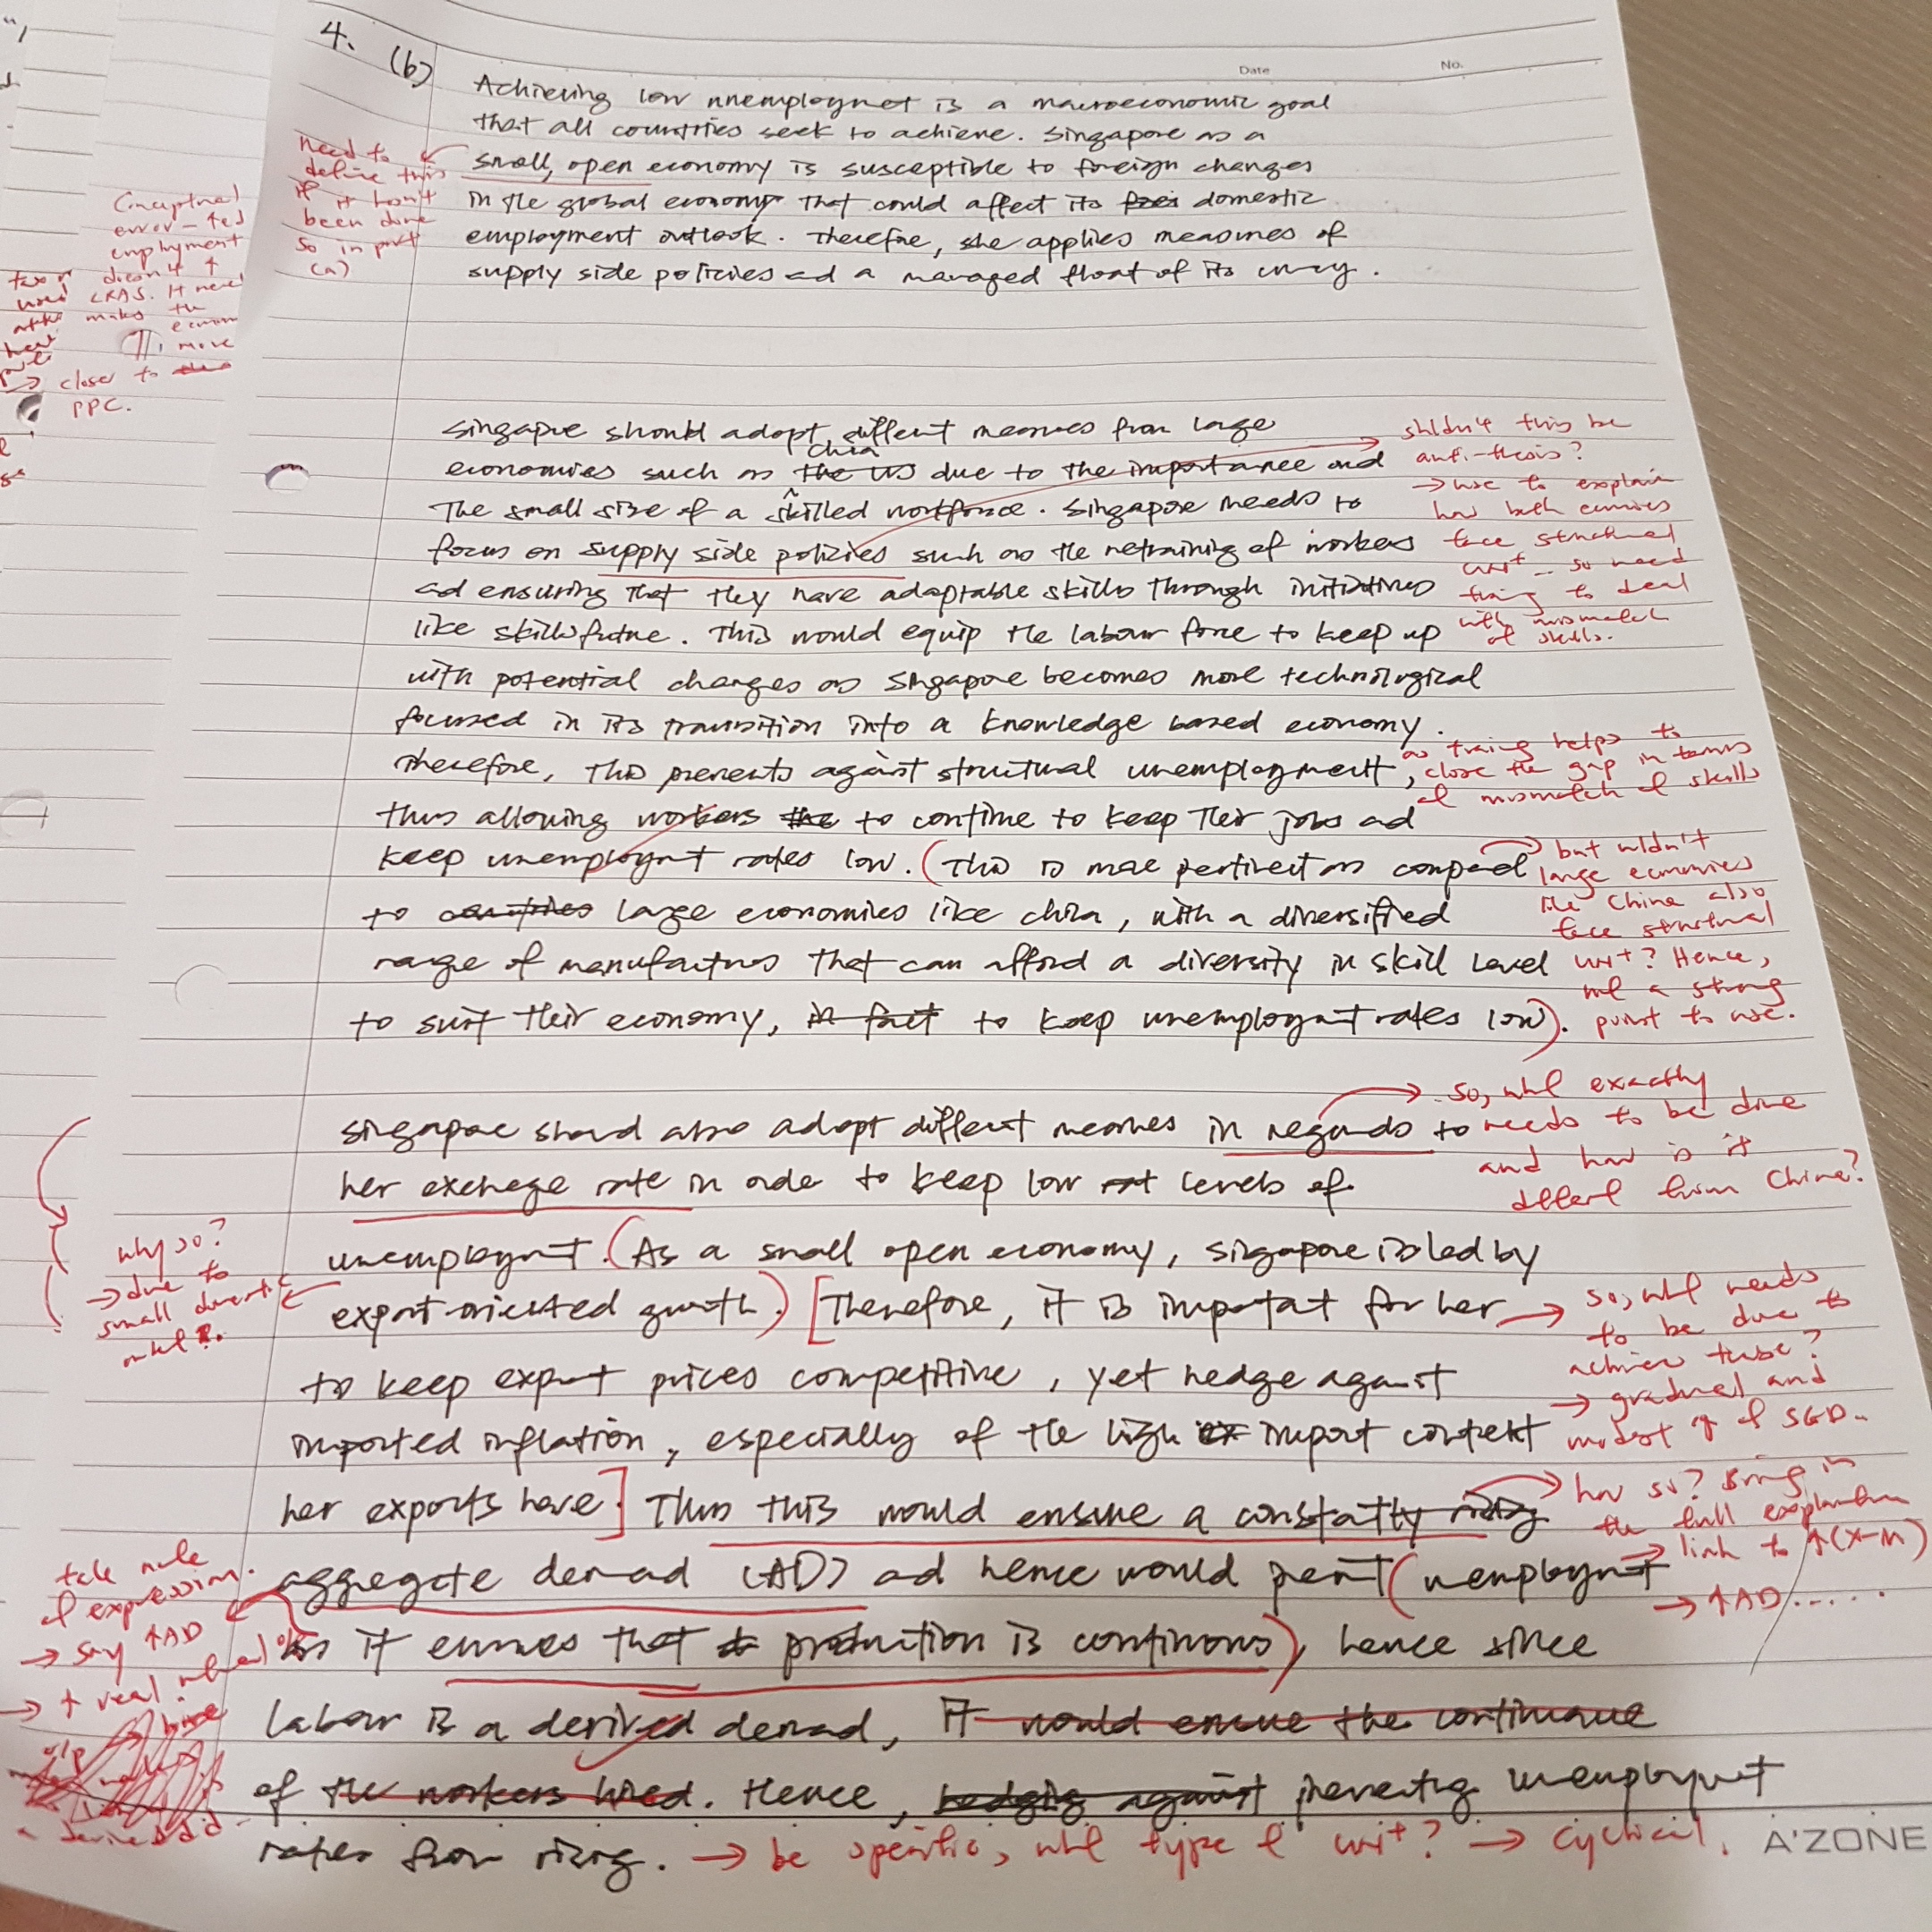 4. (b)
Date
No.
Achieving low unemploynet is a macroeconomic goal
that all countries seek to achieve. Singapore as a
small, open economy is susceptible to foreign changes
in the global economy that could affect its domestic
employment outlook. Therefore, she applies measures of
supply side policies ad a managed float of its
need to
define this
if it hasn't
been done
so in part
(a)
Conceptual
error - ↑ed
employment
doesn't ↑
LRAS. It
makes the
move
→ closer to
PPC.
Singapore should adopt different measures from large
economies such as China due to the importance and
the small size of a skilled workforce. Singapore needs to
focus on supply side policies such as the retraining of workers
ad ensuring that they have adaptable skills through initiatives
like skillsfuture. This would equip the labour force to keep up
with potential changes as Singapore becomes more technological
focused in its transition into a knowledge based economy.
Therefore, this prevents against structural unemployment,
thus allowing workers to continue to keep their jobs ad
keep unemploynt rates low. (This is more pertinent as compared
to large economies like china, with a diversified
range of manufactures that can afford a diversity in skill level
to suit their economy, to keep unemploynt rates low).
shldn't this be
anti-thesis?
→ use to explain
how both
face structural
so need
to deal
with mismatch
of skills.
as traing helps to
close the gap in terms
of mismatch of skills
but wldn't
large economies
like China also
face structural
? Hence,
a strong
point to use.
Singapore should also adopt different measures in regards to
her exchange rate in order to keep low levels of
unemploynt. (As a small open economy, Singapore is led by
export-oriented growth.) [Therefore, it is important for her
to keep export prices competitive, yet hedge against
imported inflation, especially of the high import content
her exports have.] Thus this would ensure a constantly rising
aggregate demad (AD) ad hence would (unemploynt
as it ensures that production is continuous), hence since
labour is a derived demad, it would ensure the continuance
of the workers hired. Hence, preventing unemploynt
rates from rising.
so, wht exactly
needs to be done
and how is it
differt from China?
why so?
→ due to
small domestic
so, wht needs
to be done to
achieve these?
→ gradual and
modest ↑ of SGD.
how so? Bring in
the full explanation
→ link to ↑(X-M)
→ ↑AD.....
take note
of expression.
→ say ↑AD
→ ↑ real
→ be specific, wht type of ? → cyclical.
A'ZONE